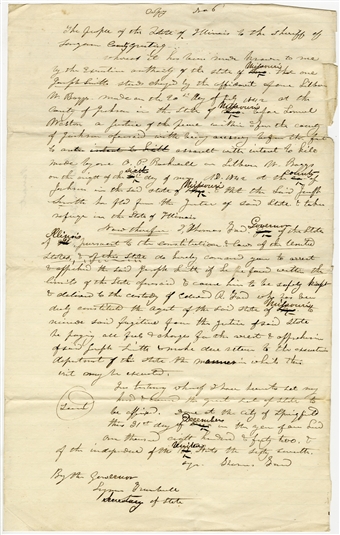 Copy No 6
The People of the State of Illinois to the Sheriff of
Sangamon County greeting
Whereas it has been made known to me
by the Executive authority of the state of Missouri that one
Joseph Smith stands charged by the affidavit of one Lilburn
W. Boggs made on the 20th day of July 1842 at the
County of Jackson in the State of Missouri before Samuel
Weston a Justice of the peace within & for the County
of Jackson aforesaid with being accessory before the fact
to an intent to kill assault with intent to kill
made by one O. P. Rockwell on Lilburn W. Boggs
on the night of the sixth day of may AD. 1842 at the county
Jackson in the said state of Missouri & that the said Joseph
Smith has fled from the Justice of said State & taken
refuge in the State of Illinois.
Now therefore I Thomas Ford Governor of the State
of Illinois, pursuant to the constitution & laws of the United
States, & of this state do hereby command you to arrest
& apprehend the said Joseph Smith if he be found within the
limits of the State aforesaid & cause him to be safely kept
& delivered to the custody of Edward R. Ford who has been
duly constituted the agent of the said state of Missouri to
receive said fugitive from the justice of said State
he paying all fees & charges for the arrest & apprehension
of said Joseph Smith & make due return to the executive
department of this state the manner in which this
writ may be executed.
In testimony whereof I have hereunto set my
hand & caused the great seal of state to
(Seal) be affixed. Done at the city of Springfield
this 31st day of December in the year of our Lord
one thousand eight hundred & forty two, &
of the independence of the United States the sixty seventh.
Thomas Ford
By the Governor
Lyman Trumbull
Secretary of State